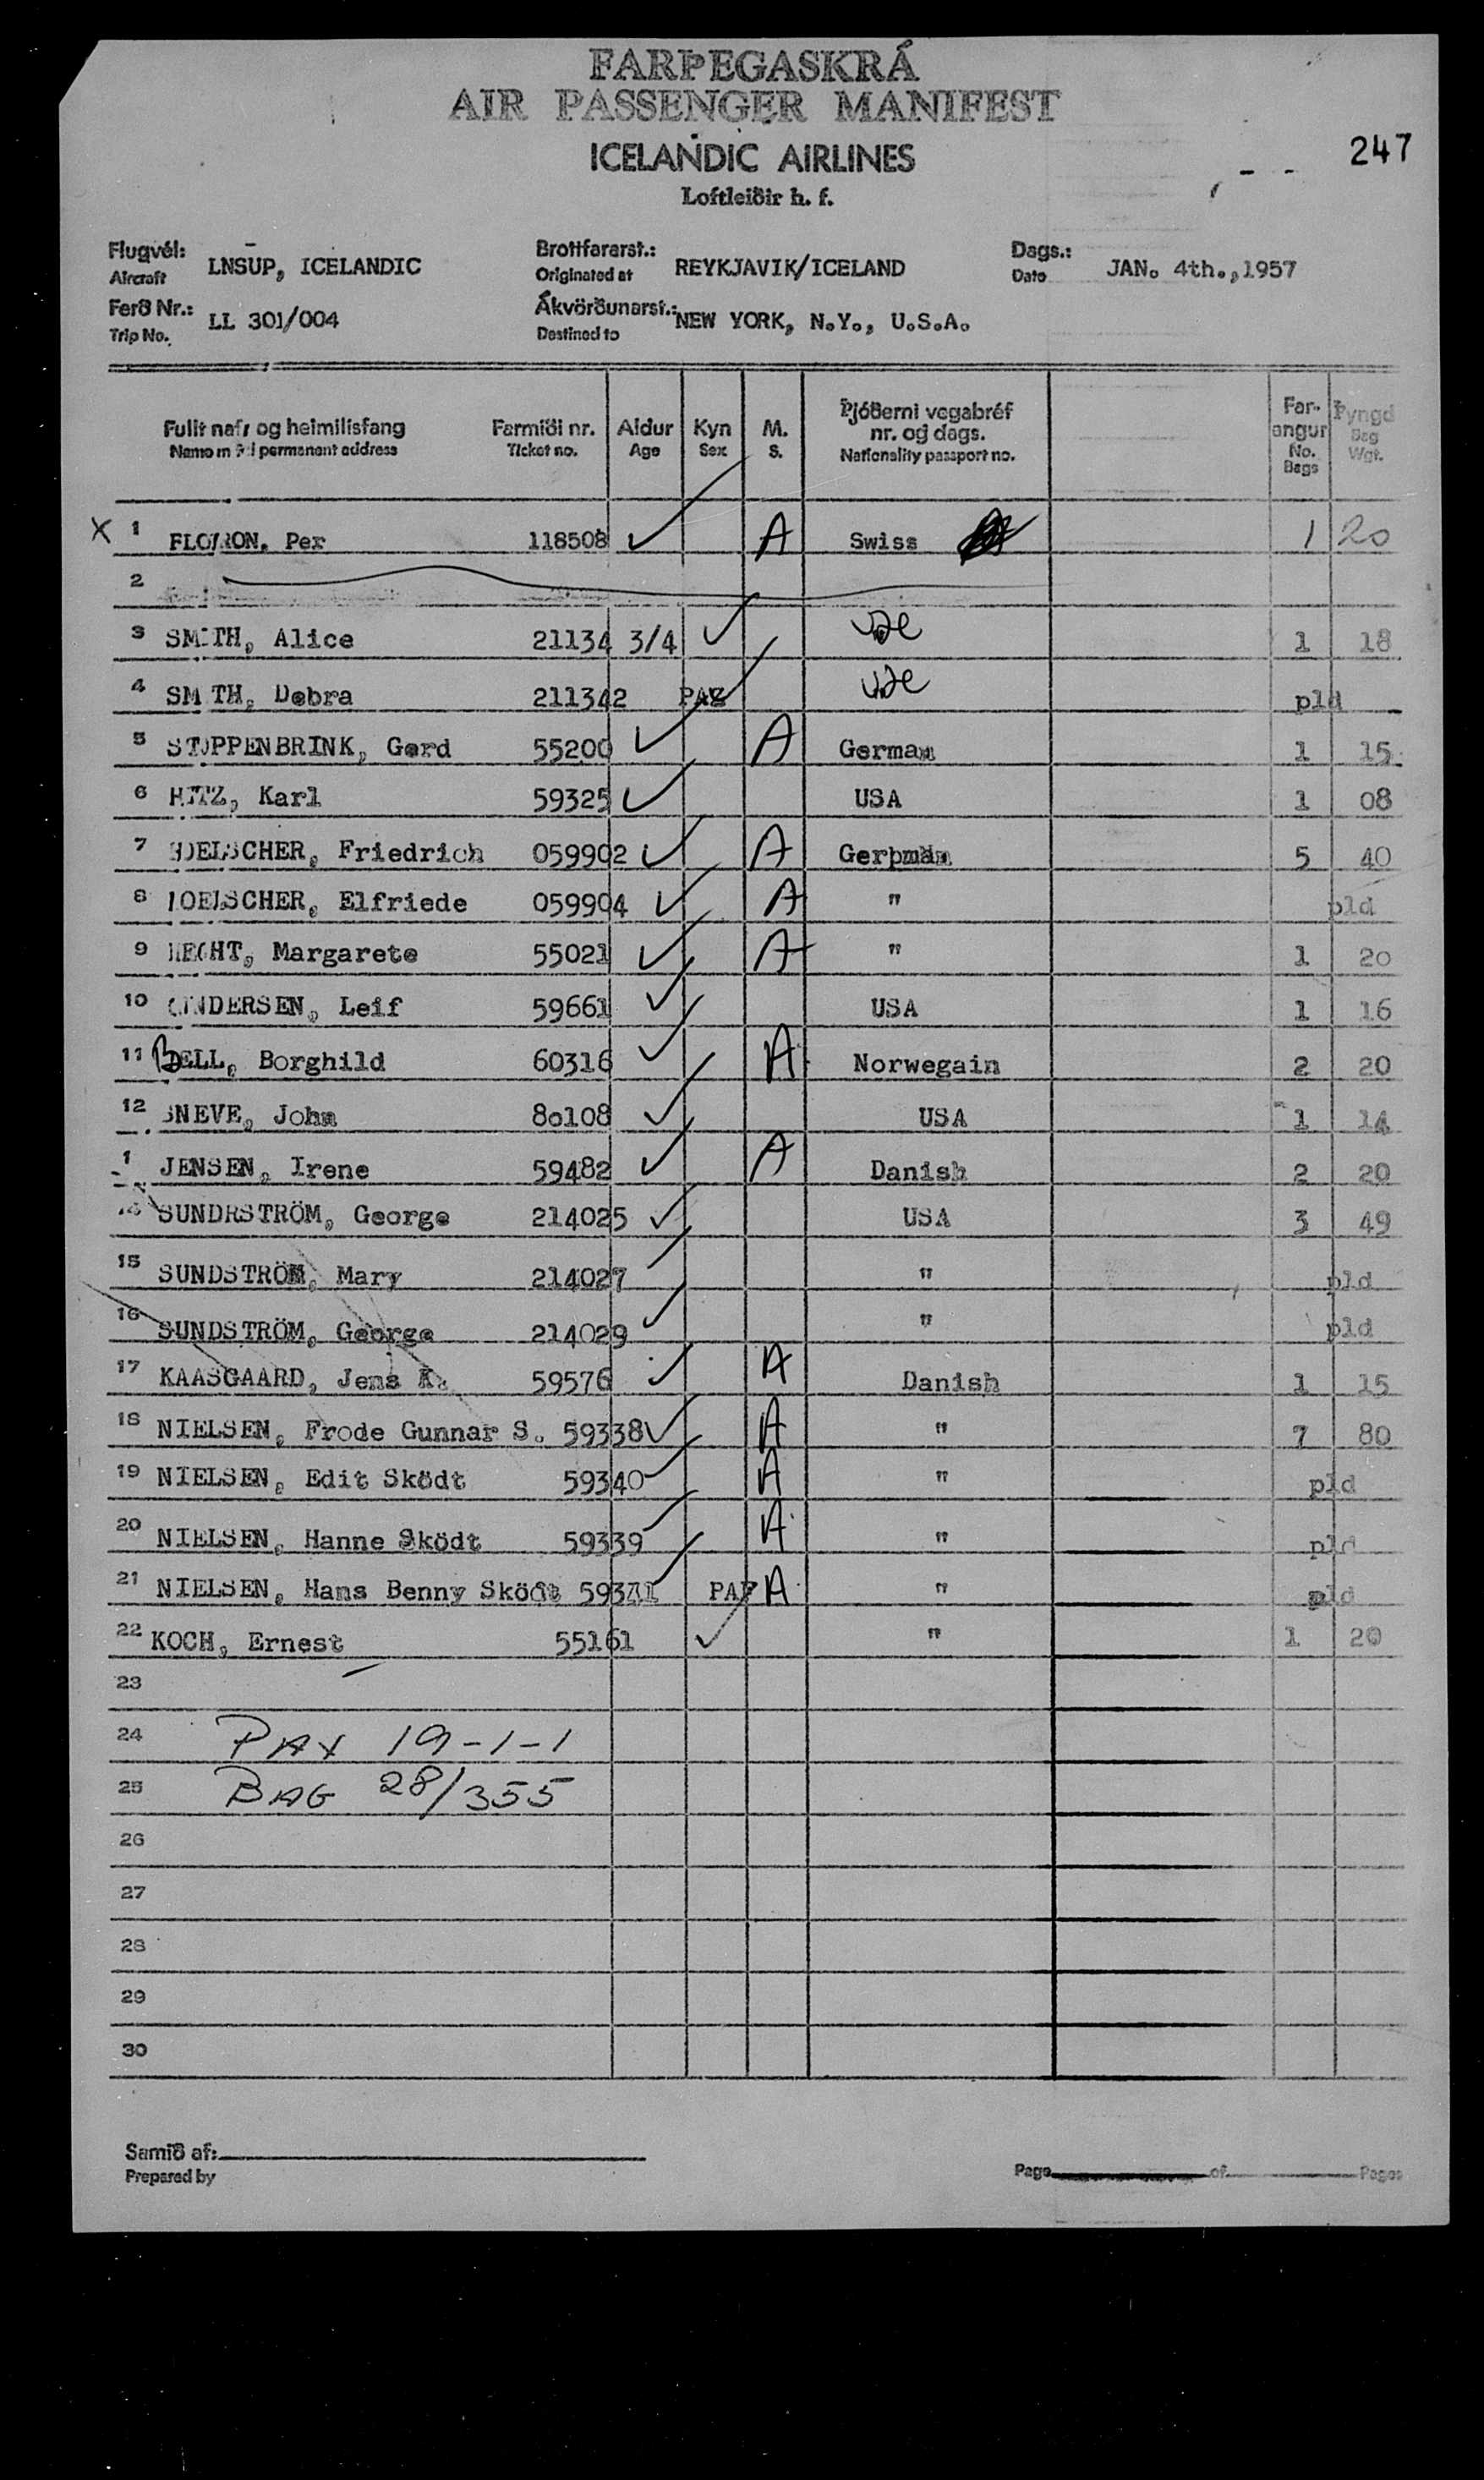 FARÞEGASKRÁ
AIR PASSENGER MANIFEST
ICELANDIC AIRLINES
Loftleiðir h. f.
247
Flugvél: LNSUP, ICELANDIC Brottfararst.: REYKJAVIK/ICELAND Dags.: JAN. 4th.,1957
Aircraft Originated at Date
Ferð Nr.: LL 301/004 Ákvörðunarst.: NEW YORK, N.Y., U.S.A.
Trip No. Destined to
Fullt nafn og heimilisfang Farmiði nr. Aldur Kyn M. Þjóðerni vegabréf nr. og dags. Far-angur Þyngd
Name in full permanent address Ticket no. Age Sex S. Nationality passport no. No. Bags Bag Wgt.
X 1 Per 118508 ✓ A Swiss 1 20
2
3 SMITH, Alice 21134 3/4 ✓ 1 18
4 SMITH, Debra 211342 ✓ pld
5 STOPPENBRINK, Gerd 55200 ✓ A German 1 15
6 Karl 59325 ✓ USA 1 08
7 HOELSCHER, Friedrich 059902 ✓ A 5 40
8 HOELSCHER, Elfriede 059904 ✓ A " pld
9 HECHT, Margarete 55021 ✓ A " 1 20
10 Leif 59661 ✓ USA 1 16
11 BELL, Borghild 60316 ✓ A Norwegain 2 20
12 SNEVE, John 80108 ✓ USA 1 14
1 JENSEN, Irene 59482 ✓ A Danish 2 20
SUNDRSTRÖM, George 214025 ✓ USA 3 49
15 SUNDSTRÖM, Mary 214027 ✓ " pld
16 SUNDSTRÖM, George 214029 ✓ " pld
17 KAASGAARD, Jens K. 59576 ✓ A Danish 1 15
18 NIELSEN, Frode Gunnar S. 59338 ✓ A " 7 80
19 NIELSEN, Edit Sködt 59340 ✓ A " pld
20 NIELSEN, Hanne Sködt 59339 ✓ A " pld
21 NIELSEN, Hans Benny Sködt ✓ A " pld
22 KOCH, Ernest 55161 ✓ " 1 20
23
24 PAX 19-1-1
25 BAG 28/355
26
27
28
29
30
Samið af:
Prepared by Page of Pages